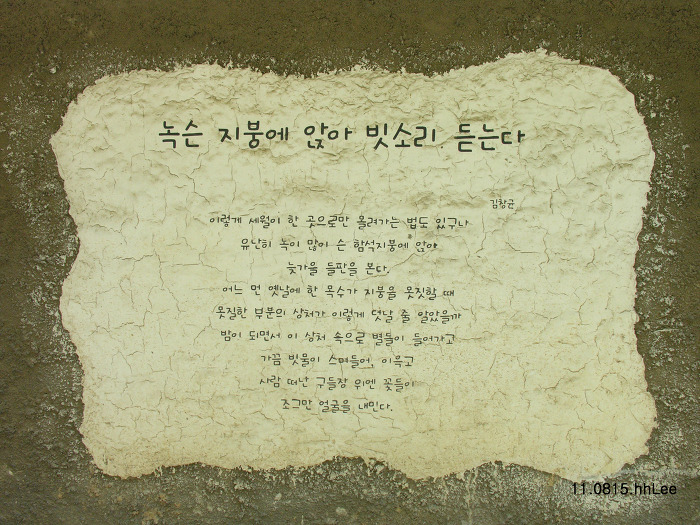 녹슨 지붕에 앉아 빗소리 듣는다
김창균
이렇게 세월이 한 곳으로만 몰려가는 법도 있구나
유난히 녹이 많이 슨 함석지붕에 앉아
늦가을 들판을 본다.
어느 먼 옛날에 한 목수가 지붕을 못짓할 때
못질한 부분의 상처가 이렇게 덧날 줄 알았을까
밤이 되면서 이 상처 속으로 별들이 들어가고
가끔 빗물이 스며들어, 이윽고
사람 떠난 구들장 위엔 꽃들이
조그만 얼굴을 내민다.
11.0815.hhLee